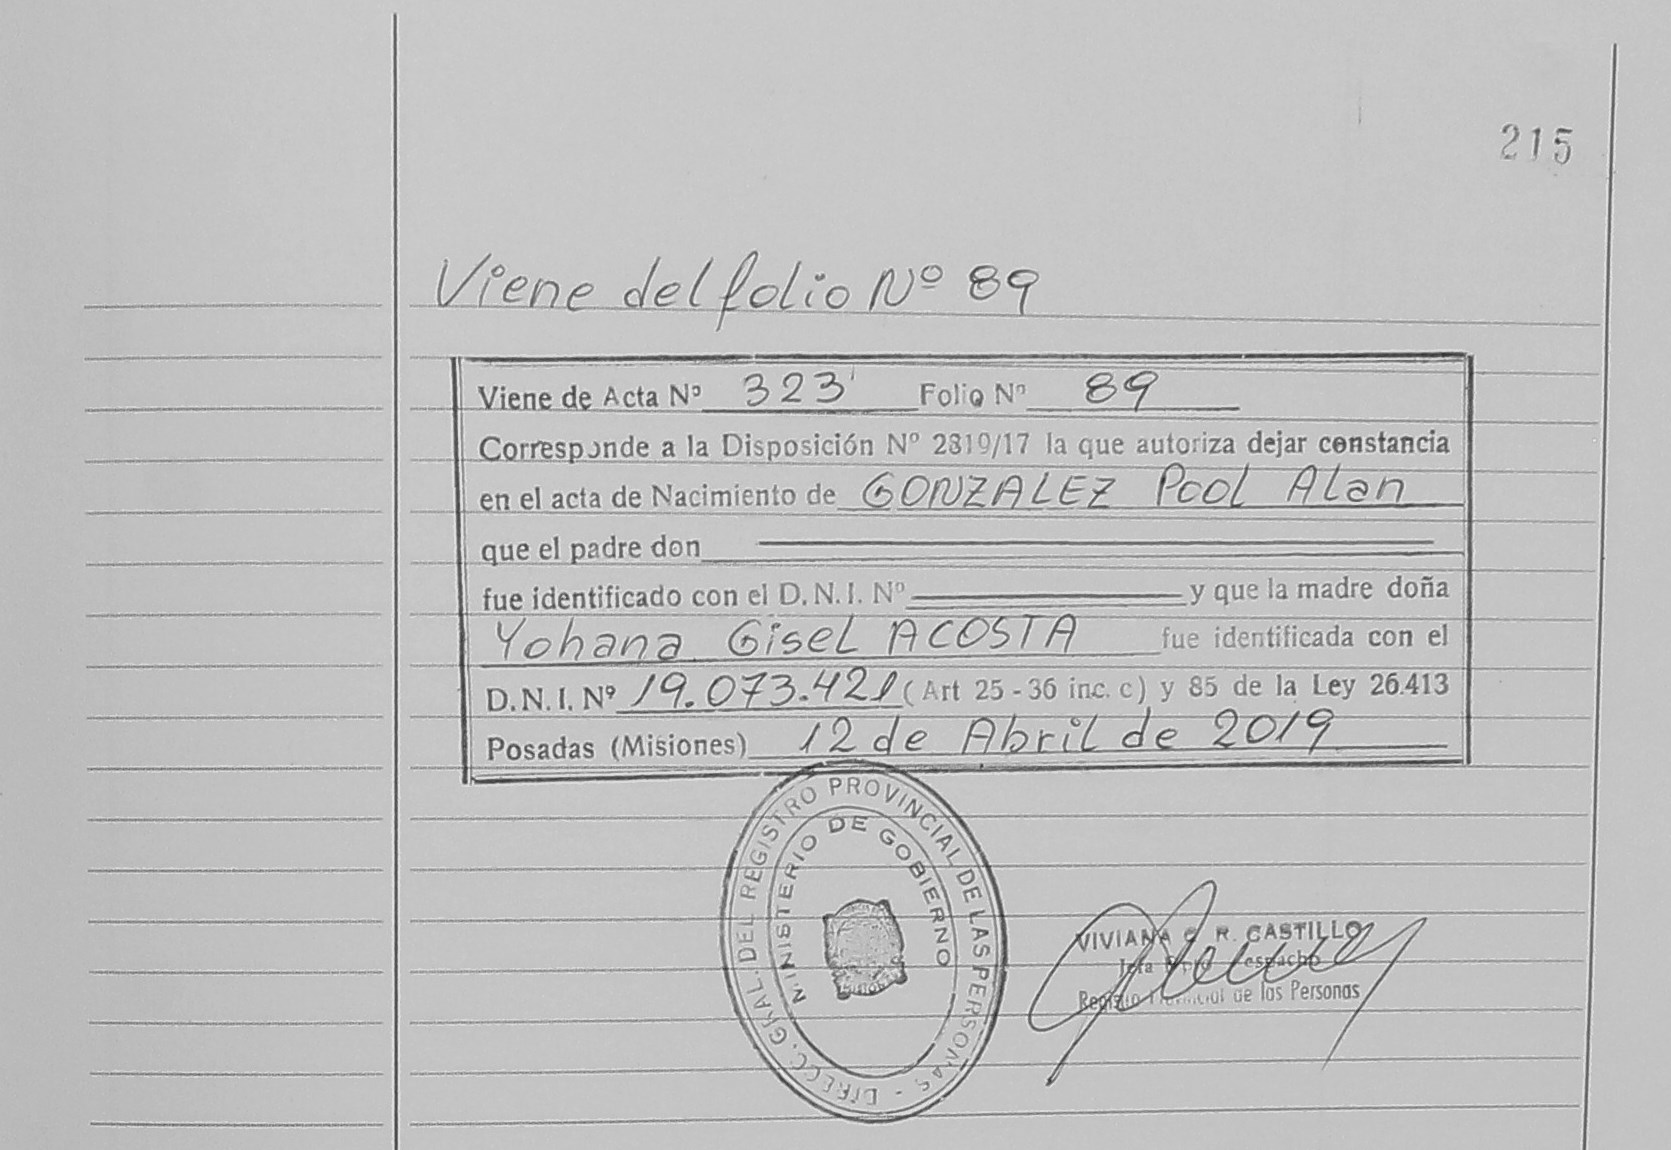 215
Viene del folio Nº 89
Viene de Acta Nº 323 Folio Nº 89
Corresponde a la Disposición Nº 2819/17 la que autoriza dejar constancia
en el acta de Nacimiento de GONZALEZ Pool Alan
que el padre don
fue identificado con el D.N.I. Nº y que la madre doña
Yohana Gisel ACOSTA fue identificada con el
D.N.I. Nº 19.073.421 (Art 25 - 36 inc. c) y 85 de la Ley 26.413
Posadas (Misiones) 12 de Abril de 2019
DIRECC. GRAL. DEL REGISTRO PROVINCIAL DE LAS PERSONAS -
MINISTERIO DE GOBIERNO
VIVIANA R. CASTILLO
Jefa Despacho
Registro Provincial de las Personas